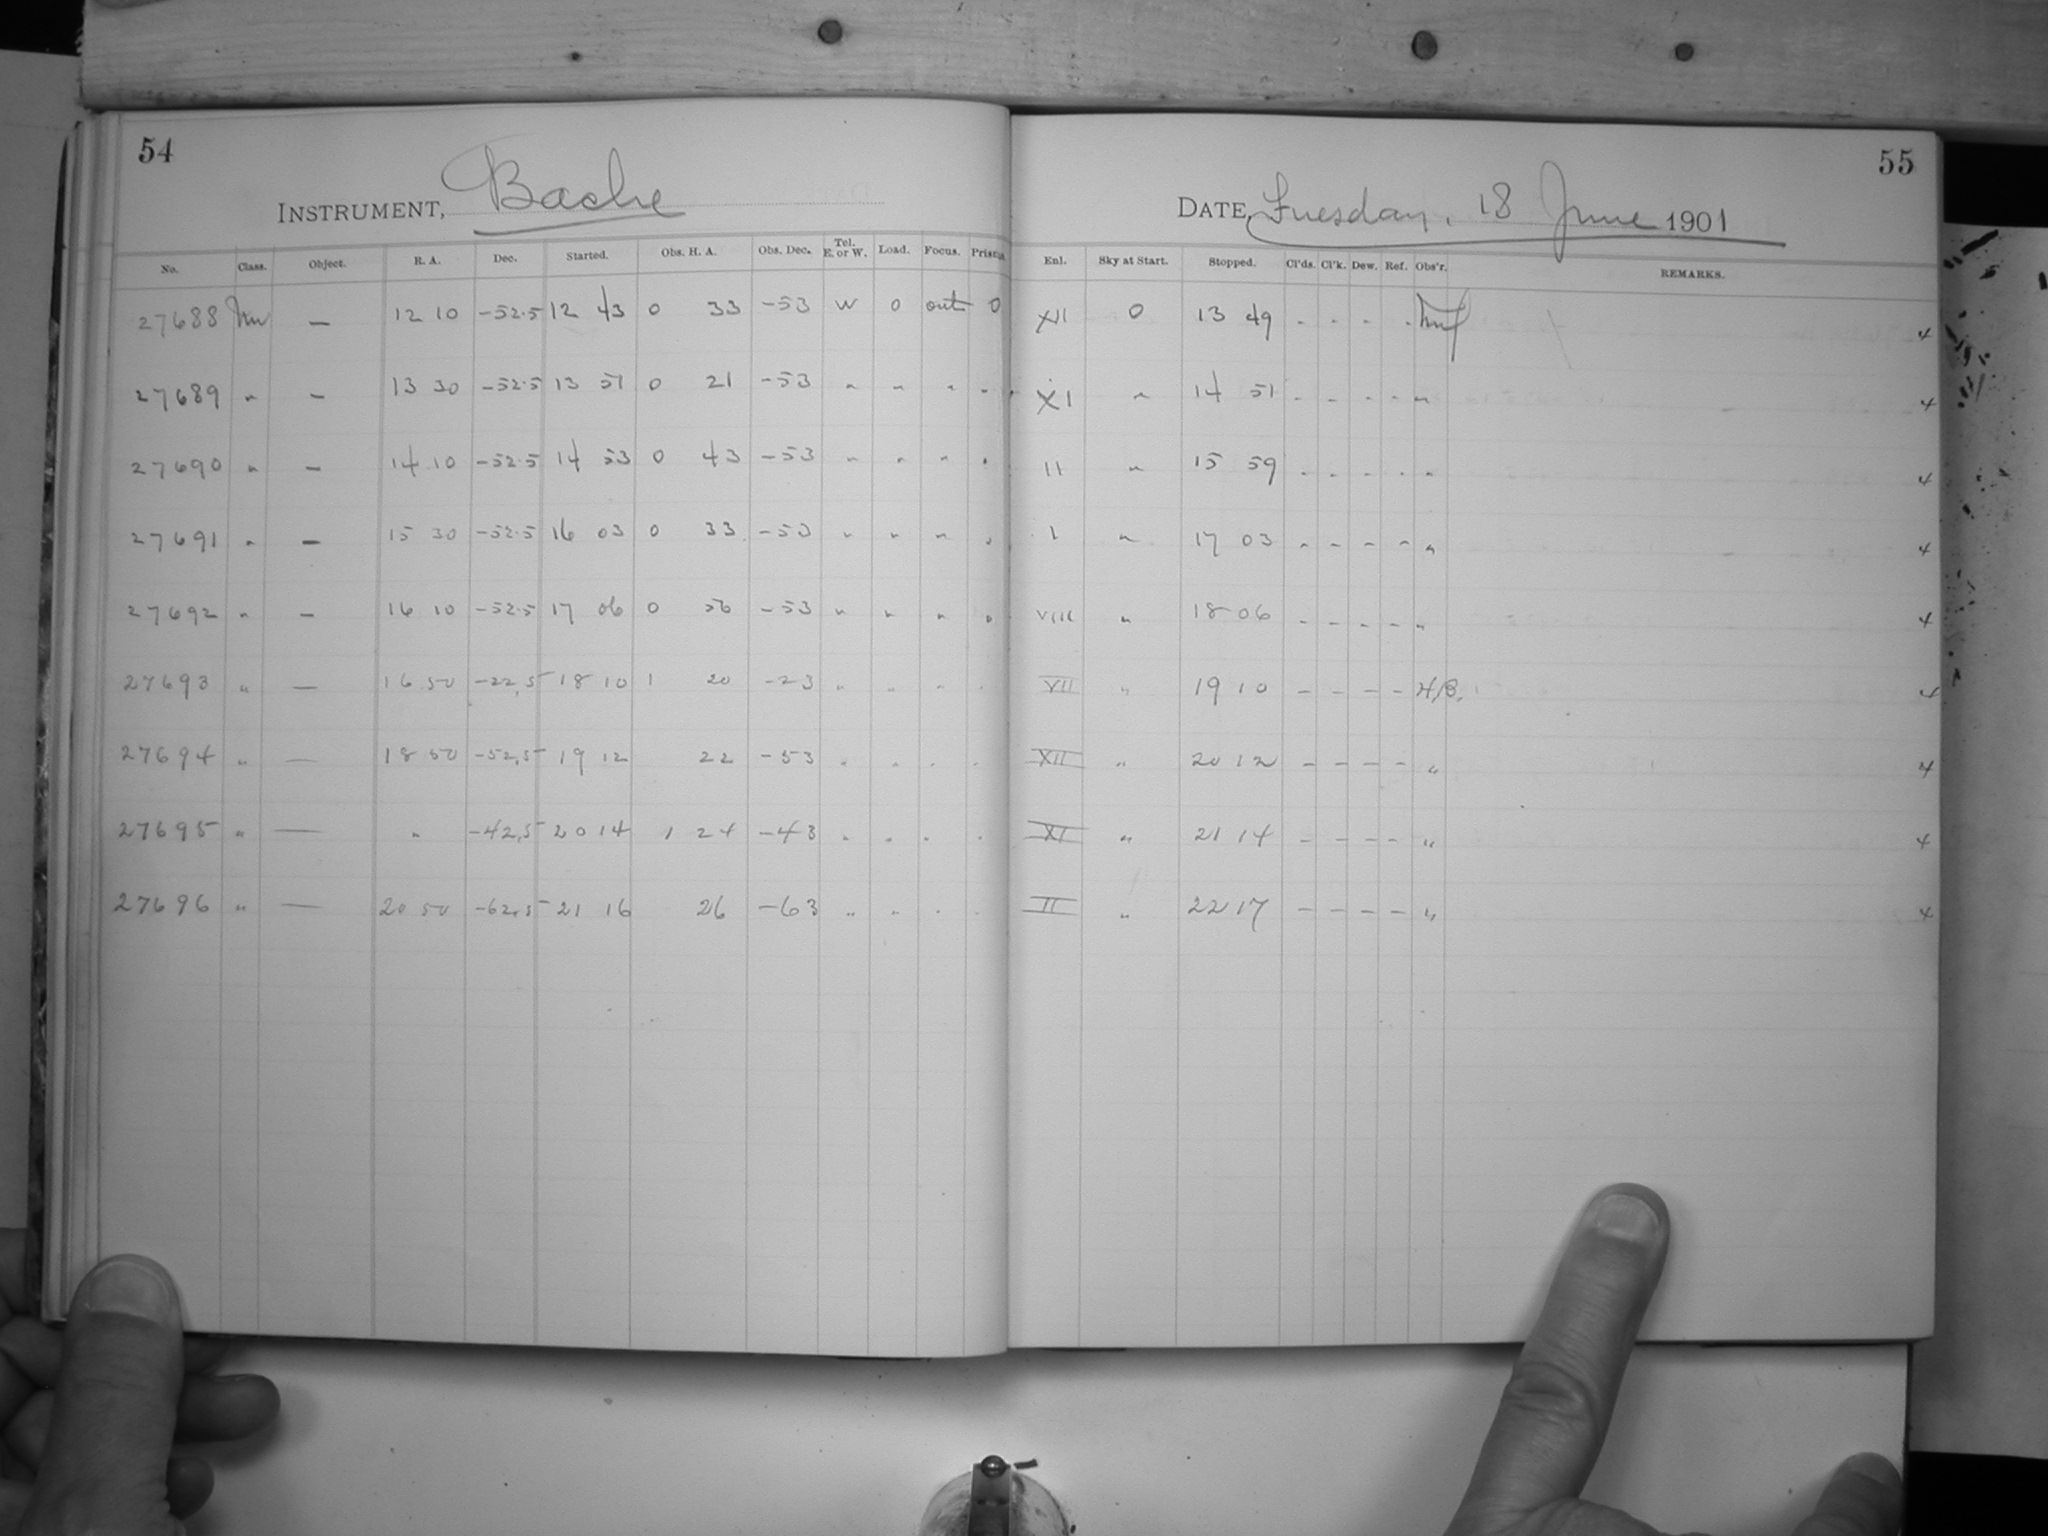 54
INSTRUMENT, Bache
No. Class. Object. R. A. Dec. Started. Obs. H. A. Obs. Dec. Tel. E. or W. Load. Focus. Prism.
27688 — 12 10 -52.5 12 43 0 33 -53 W 0 out 0
27689 " — 13 30 -52.5 13 51 0 21 -53 " " " "
27690 " — 14 10 -52.5 14 53 0 43 -53 " " " "
27691 " — 15 30 -52.5 16 03 0 33 -53 " " " "
27692 " — 16 10 -52.5 17 06 0 56 -53 " " " "
27693 " — 16 50 -22.5 18 10 1 20 -23 " " " "
27694 " — 18 50 -52.5 19 12 22 -53 " " " "
27695 " — " -42.5 20 14 1 24 -43 " " " "
27696 " — 20 50 -62.5 21 16 26 -63 " " " "
55
DATE, Tuesday, 18 June 1901
Enl. Sky at Start. Stopped. Cl'ds. Cl'k. Dew. Ref. Obs'r. REMARKS.
XII 0 13 49 - - - - 4
XI " 14 51 - - - - " 4
II " 15 59 - - - - " 4
I " 17 03 - - - - " 4
VIII " 18 06 - - - - " 4
VII " 19 10 - - - - 4
XII " 20 12 - - - - " 4
XI " 21 14 - - - - " 4
II " 22 17 - - - - " 4